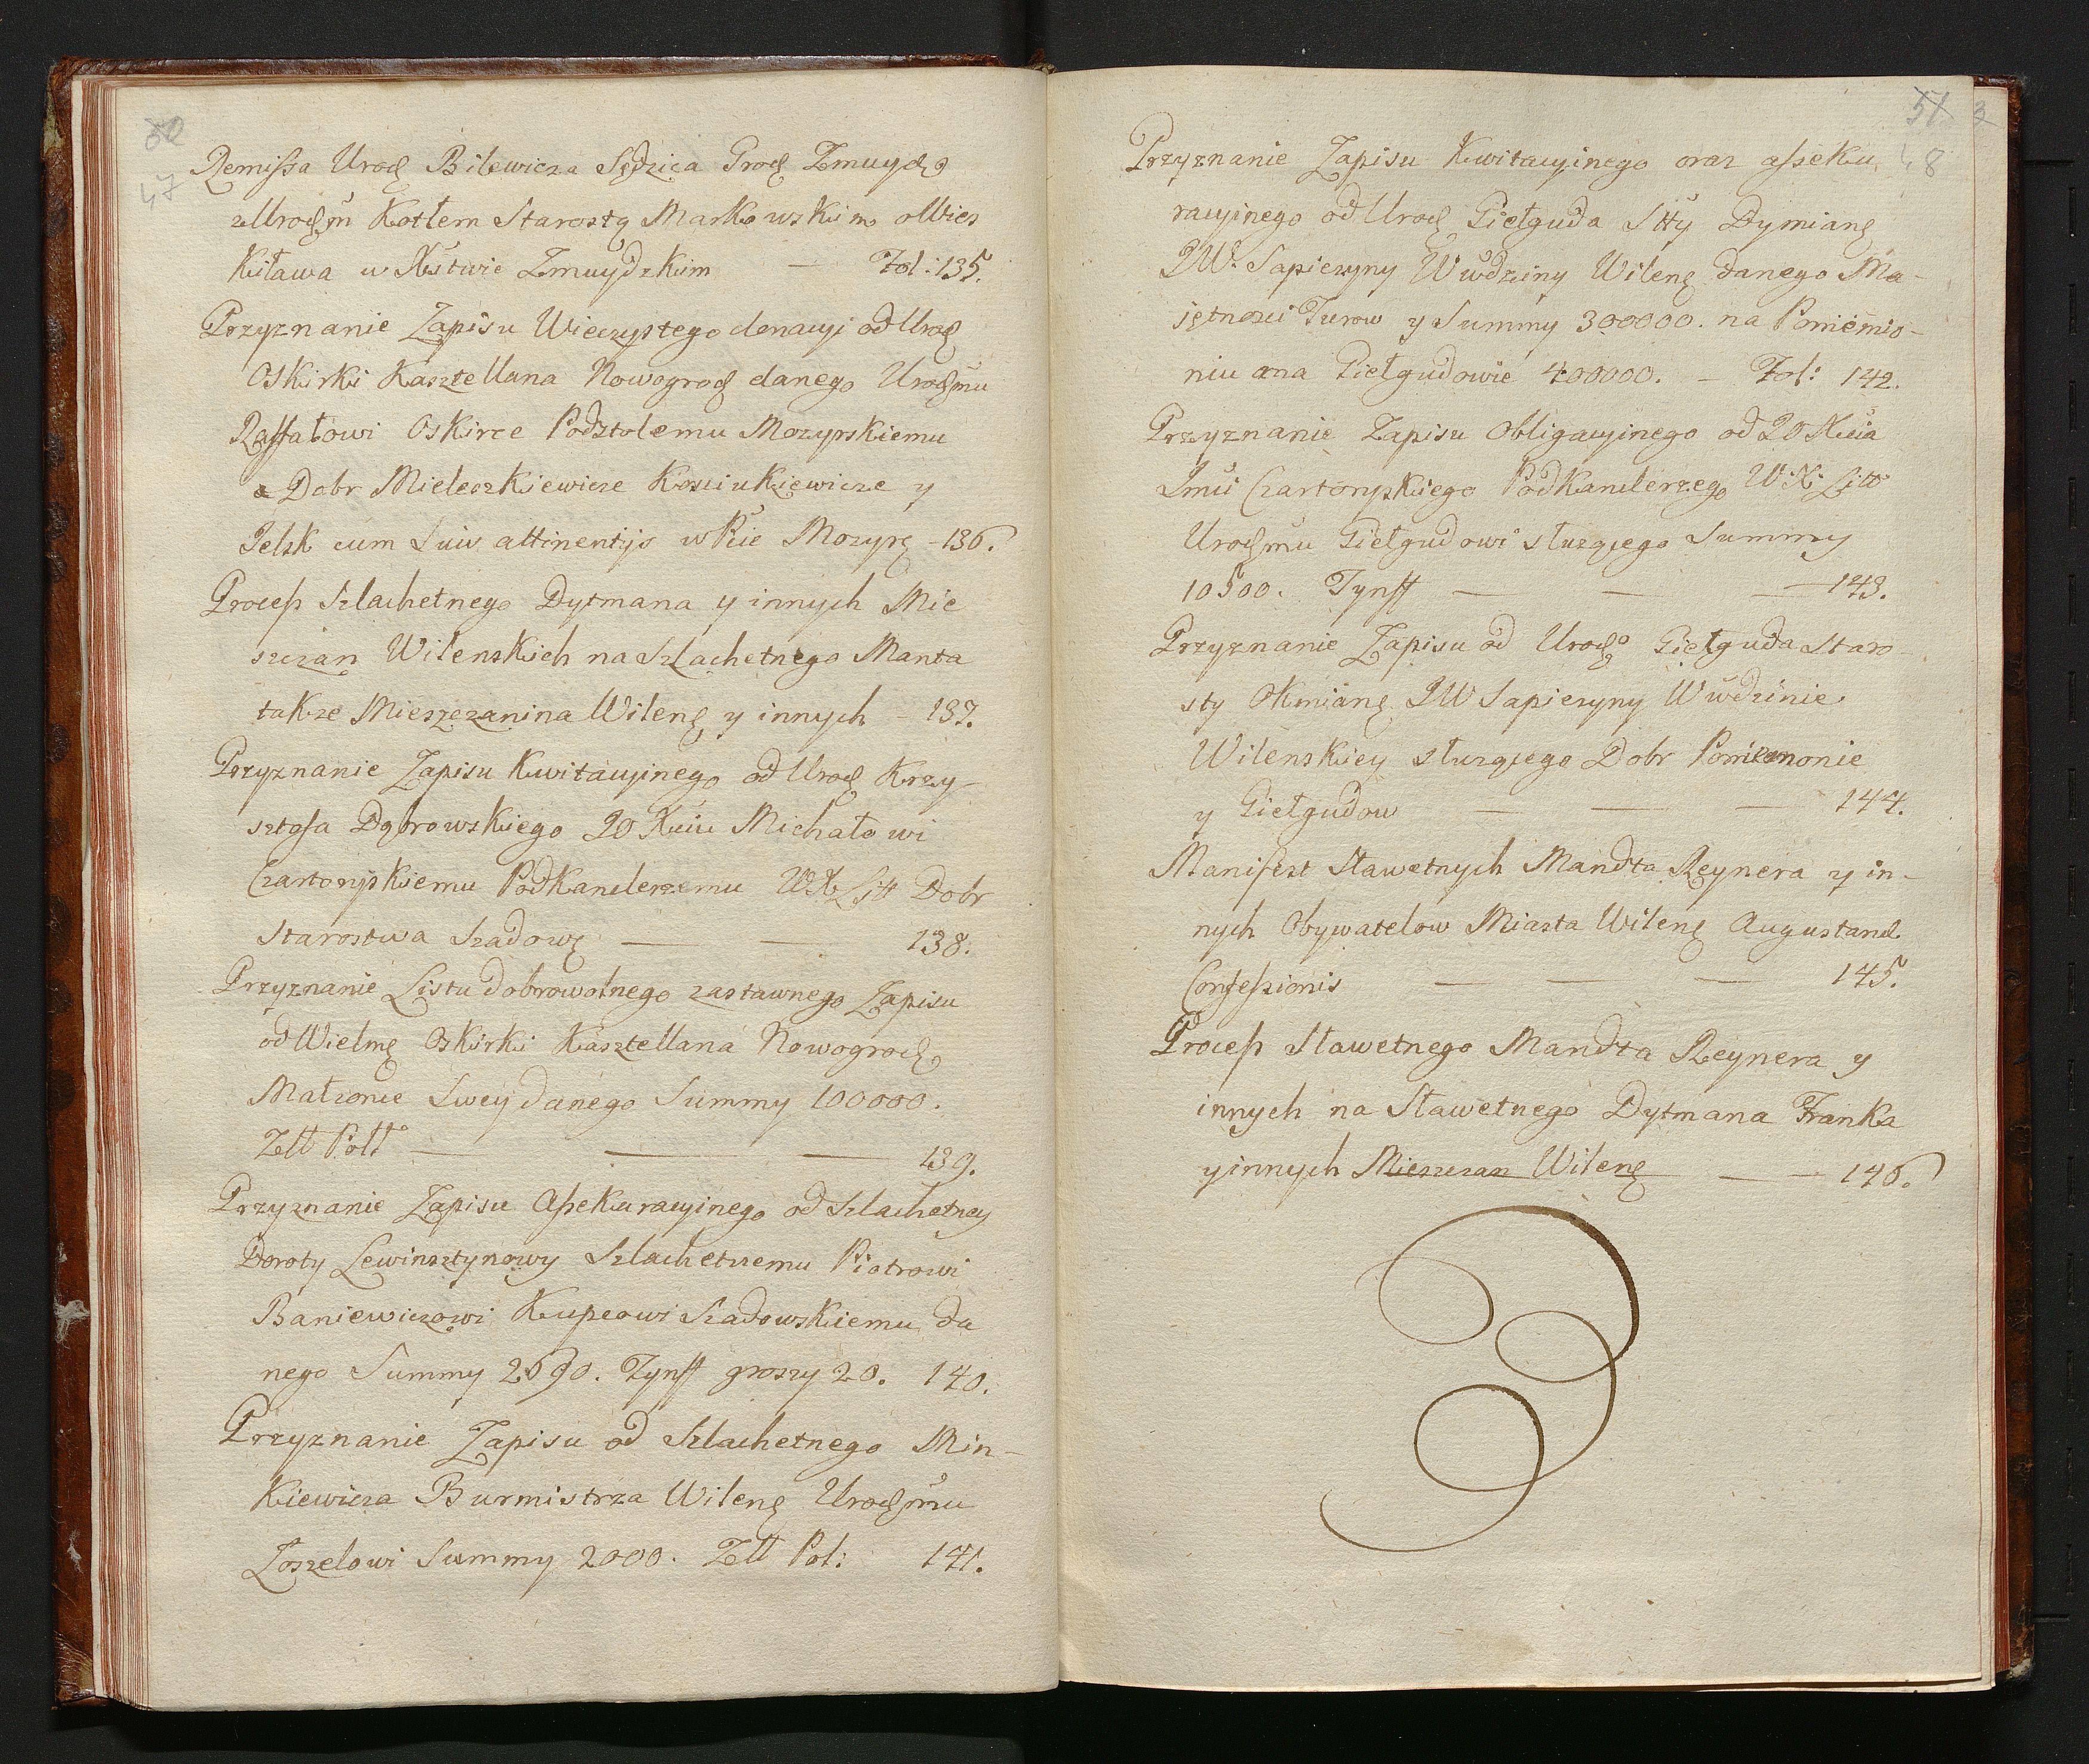 50
47
Remissa Urod Bilewicza Sędzica Grod Zmuydg
z Urodzm Kotłem Starostą Markowskim o Wies
Kiława w Xstwie Zmuydzkim — Fol: 135.
Przyznanie Zapisu Wieczystego donacyi od Urod
Oskirki Kasztellana Nowogrod danego Urodzmu
Raffałowi Oskirce Podstolemu Mozyrskiemu
a Dobr Mieleszkiewicze Kosciukiewicze y
Jelsk cum Suis attinentijs w Pcie Mozyrs - 136.
Process Szlachetnego Dytmana y innych Mie
szczan Wilenskich na Szlachetnego Manta
takze Mieszczanina Wilens y innych - 137.
Przyznanie Zapisu Kwitacyinego od Urod Krzy-
sztofa Dąbrowskiego JO Xciu Michałowi
Czartoryskiemu Podkanclerzemu WXLitt Dobr
Starostwa Szadows — — 138.
Przyznanie Listu dobrowolnego zastawnego Zapisu
od Wielmz Oskirki Kasztellana Nowogrodg
Małzonce Swey danego Summy 100000.
Zełł Poll — — — 139.
Przyznanie Zapisu Assekuracyinego od Szlachetney
Doroty Lewinsztynowy Szlachetnemu Piotrowi
Baniewiczowi Kupcowi Szadowskiemu da
nego Summy 2690. Tynff groszy 20. 140.
Przyznanie Zapisu od Szlachetnego Min-
kiewicza Burmistrza Wilens Urodzmu
Loszelowi Summy 2000. Zełł Pol: 141.
51
48
Przyznanie Zapisu Kwitacyinego oraz asseku
racyinego od Urod Giełguda Stty Dymians
JW. Sapiezyny Wwdziny Wilens danego Ma-
jętnosci Turow y Summy 300000. na Poniemo-
niu a na Giełgudowie 400000. — Fol: 142.
Przyznanie Zapisu Obligacyinego od JO Xcia
Jmci Czartoryskiego Podkanclerzego W:X: Litt:
Urodzmu Giełgudowi słuzącego Summy
10500. Tynff — — — 143.
Przyznanie Zapisu od Urodgo Giełguda Staro-
sty Okmians JW Sapiezyny Wwdzinie
Wilenskiey słuzącego Dobr Poniemonie
y Giełgudow — — — 144.
Manifest Sławetnych Mandta Reynera y in-
nych Obywatelow Miasta Wilens Augustanæ
Confessionis — — — 145.
Process Sławetnego Mandta Reynera y
innych na Sławetnego Dytmana Franka
y innych Mieszczan Wilens — — 146.